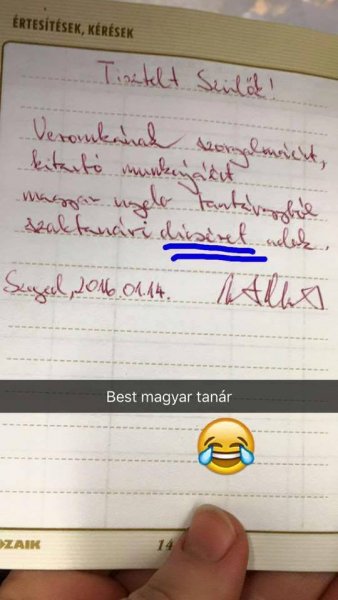 ÉRTESÍTÉSEK, KÉRÉSEK
Tisztelt Szülők!
Veronikának szorgalmáért,
kitartó munkájáért
magyar nyelv tantárgyból
szaktanári dicséret adok.
Szeged, 2016.01.14.
Best magyar tanár
OZAIK
14